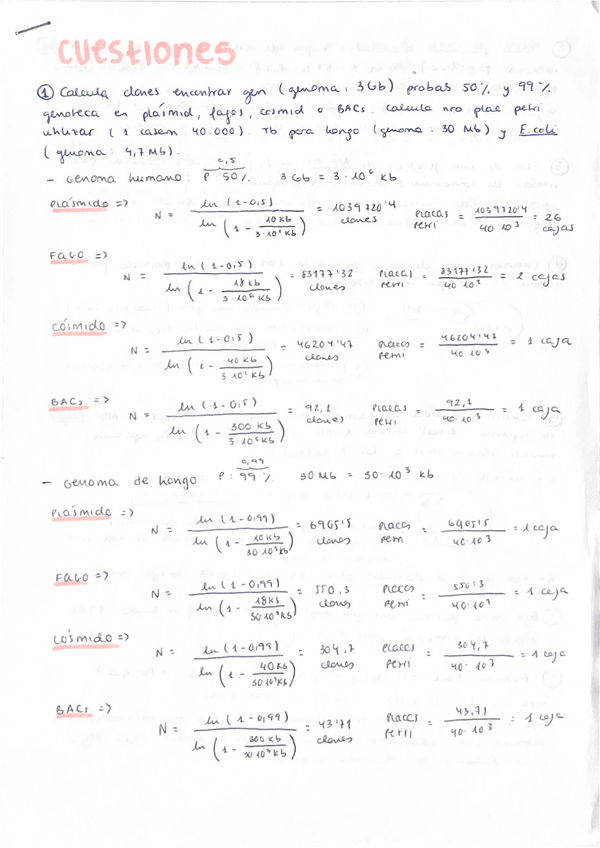 CUESTIONES
① Calcula clones encontrar gen (genoma: 3Gb) probas 50% y 99%
genoteca en plásmid, fagos, cosmid o BACs. Calcula nro plac petri
utilizar (1 casem 40.000). Tb para hongo (genoma: 30 Mb) y E.coli
(genoma: 4,7 Mb).
0,5
- Genoma humano: P: 50%. 3 Gb = 3·10⁶ kb
Plásmido => N = ln (1-0,5) / ln (1 - 10kb / 3·10⁶ kb) = 1039720'4 clones Placas Petri = 103972'4 / 40·10³ = 26 cajas
FAGO => N = ln (1-0,5) / ln (1 - 18kb / 3·10⁶ kb) = 83177'32 clones Placas Petri = 83177'32 / 40·10³ = 2 cajas
Cósmido => N = ln (1-0,5) / ln (1 - 40 kb / 3·10⁶ kb) = 46204'47 clones Placas Petri = 46204'47 / 40·10³ = 1 caja
BACs => N = ln (1-0,5) / ln (1 - 300 kb / 3·10⁶ kb) = 92,1 clones Placas Petri = 92,1 / 40·10³ = 1 caja
0,99
- Genoma de hongo: P: 99%. 30 Mb = 30·10³ kb
Plásmido => N = ln (1-0,99) / ln (1 - 10kb / 30·10³ kb) = 6905'5 clones Placas Petri = 6905'5 / 40·10³ = 1 caja
FAGO => N = ln (1-0,99) / ln (1 - 18kb / 30·10³ kb) = 550,3 clones Placas Petri = 550'3 / 40·10³ = 1 caja
Cósmido => N = ln (1-0,99) / ln (1 - 40kb / 30·10³ kb) = 304,7 clones Placas Petri = 304,7 / 40·10³ = 1 caja
BACs => N = ln (1-0,99) / ln (1 - 300 kb / 30·10³ kb) = 43'71 clones Placas Petri = 43,71 / 40·10³ = 1 caja